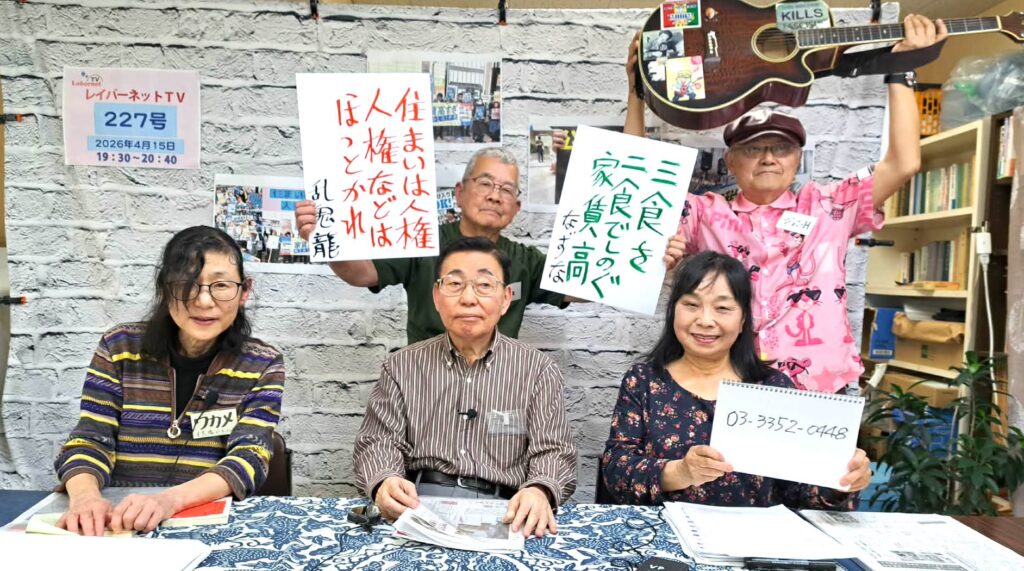 TV
Labornet
レイバーネットTV
227号
2026年4月15日
19:30~20:40
住まいは人権
人権などは
ほっとかれ
乱鬼龍
三食を
二食でしのぐ
家賃高
なずな
KILLS
ワカメ
03-3352-0448